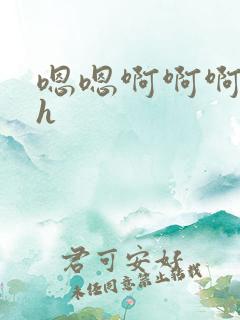 嗯嗯啊啊啊
h
君可安好
未经同意禁止转载